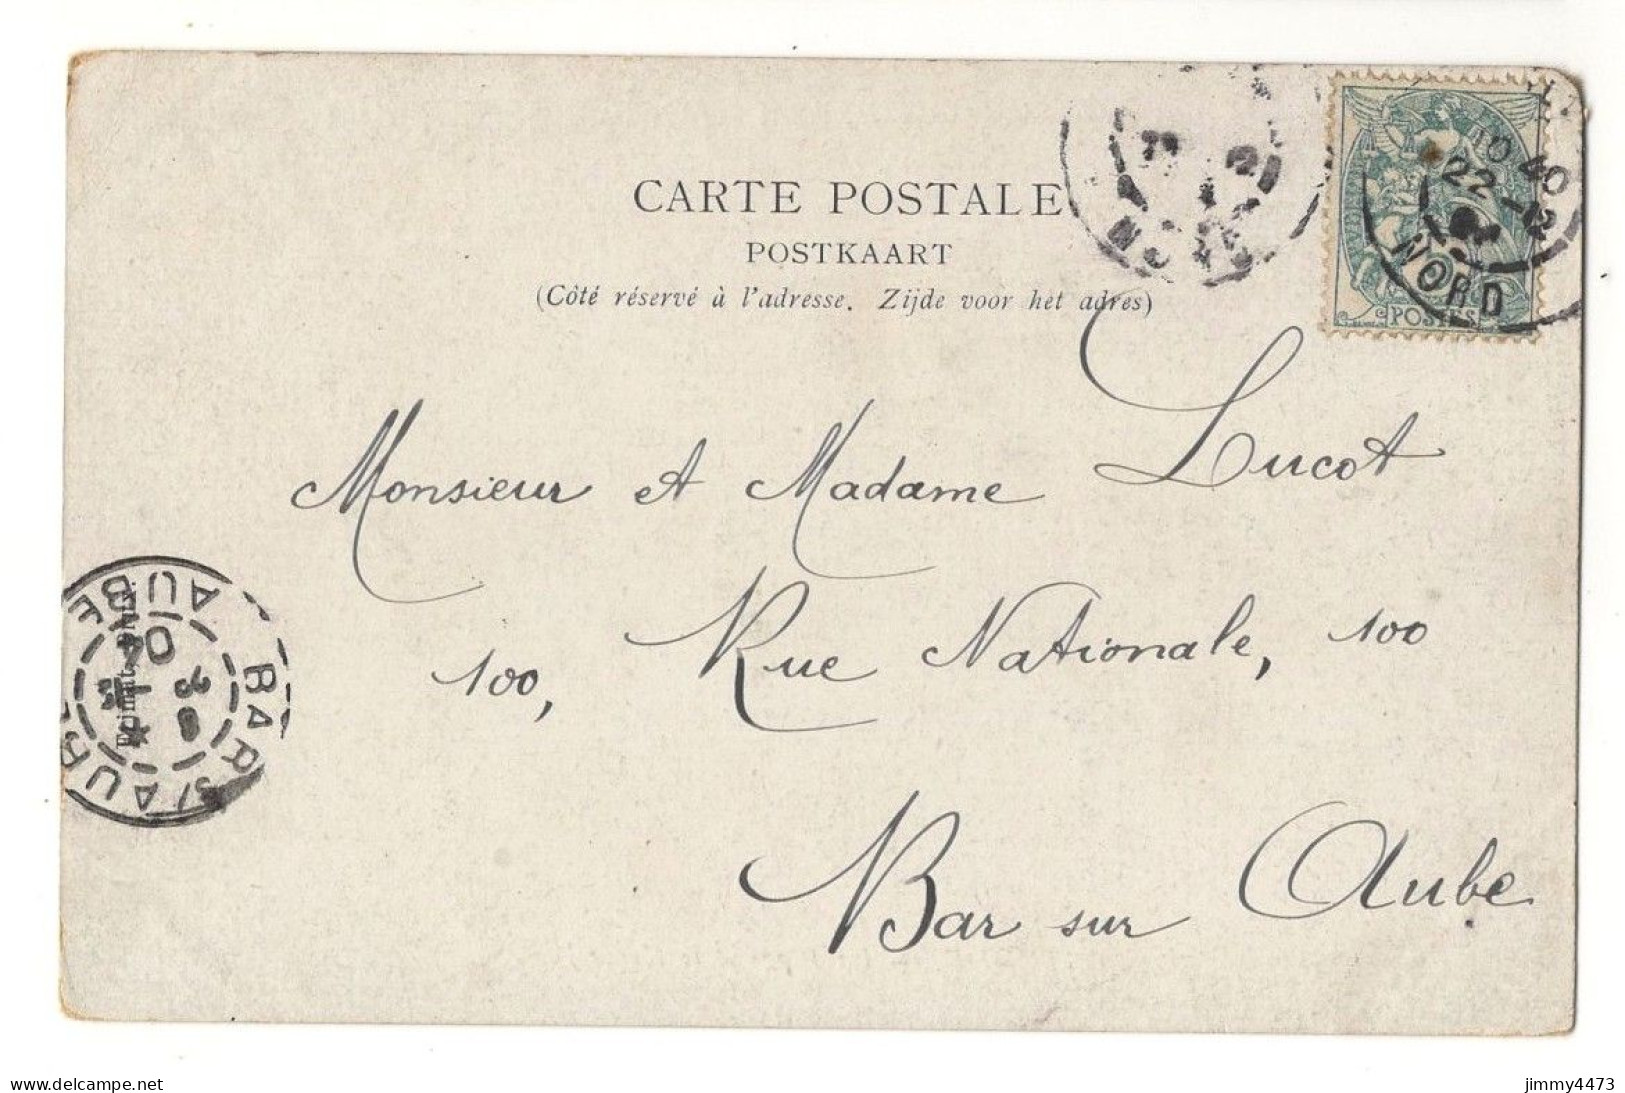 CARTE POSTALE
POSTKAART
(Côté réservé à l'adresse. Zijde voor het adres)
POSTES
10 40
22 -12
NORD
Monsieur et Madame Lucot
100, Rue Nationale, 100
Bar sur Aube
BAR S/ AUBE
AUBE
04
delcampe.net
jimmy4473